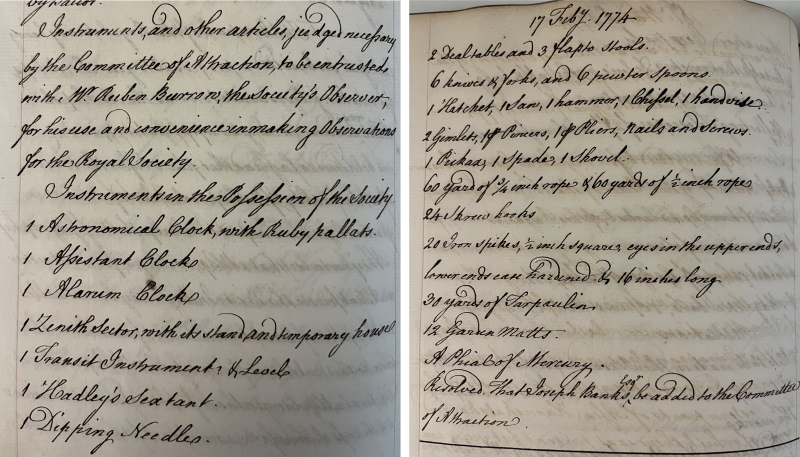 by
Instruments, and other articles, judged necessary
by the Committee of Attraction, to be entrusted
with Mr. Reuben Burrow, the Society's Observer,
for his use and convenience in making Observations
for the Royal Society.
Instruments in the Possession of the Society
1 Astronomical Clock, with Ruby pallats.
1 Assistant Clock
1 Alarum Clock
1 Zenith Sector, with its stand and temporary house
1 Transit Instrument & Level
1 Hadley's Sextant.
1 Dipping Needle.
17 Feby. 1774
2 Deal tables and 3 flapto Stools.
6 knives & forks, and 6 pewter spoons.
1 Hatchet, 1 Saw, 1 hammer, 1 Chissel, 1 handvise
2 Gimlets, 1 pr Pincers, 1 pr Pliers, Nails and Screws.
1 Pickax, 1 Spade, 1 Shovel.
60 yards of ¾ inch rope & 60 yards of ½ inch rope
24 Skrew hooks
20 Iron spikes, ½ inch square, eyes in the upper ends,
lower ends case hardened & 16 inches long
30 yards of Tarpaulin
12 Garden Matts.
A Phial of Mercury.
Resolved. That Joseph Banks Esqr. be added to the Committee
of Attraction.